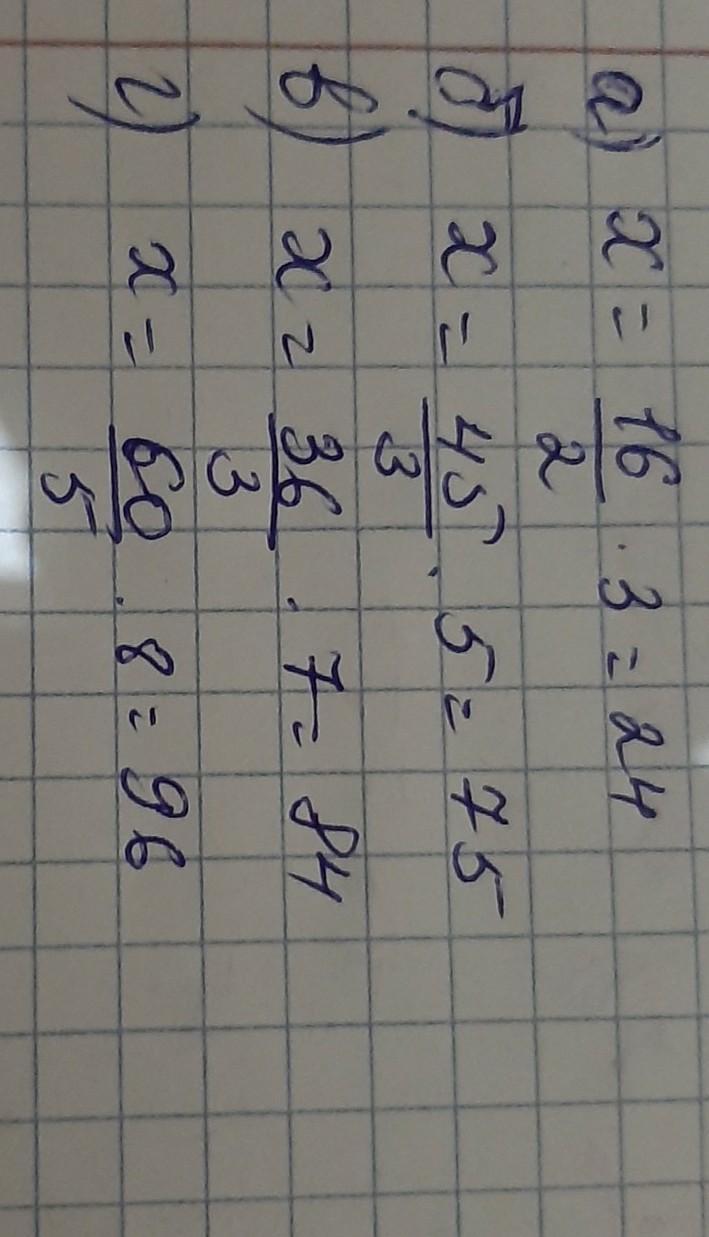 а) x = 16/2 · 3 = 24
б) x = 45/3 · 5 = 75
в) x = 36/3 · 7 = 84
г) x = 60/5 · 8 = 96